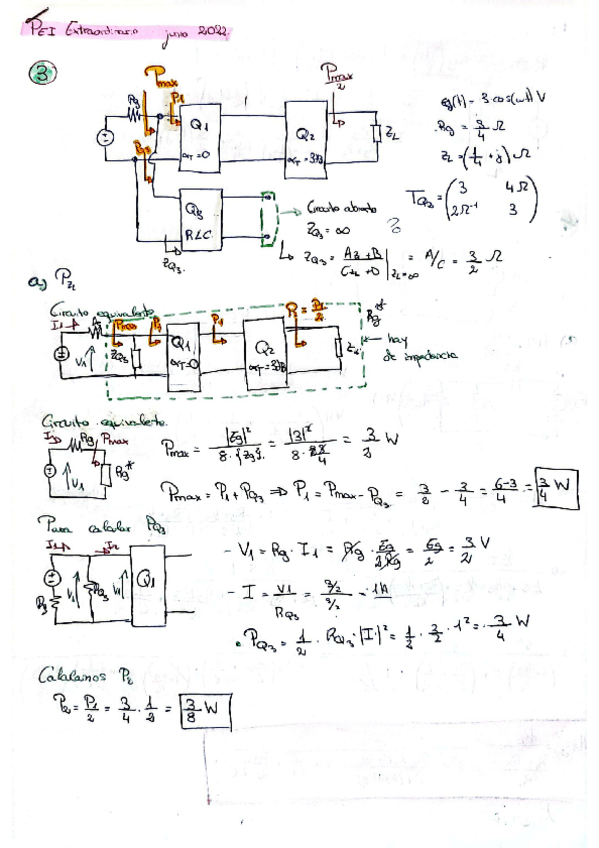 PEI Extraordinario junio 2022.
3
Pmax
Pmax/2
Rg
P1
Q1
αT=0
Q2
αT=3dB
ZL
eg(t) = 3 cos(ωt) V
Rg = 3/4 Ω
TQ3 = (3 4Ω
2Ω⁻¹ 3)
Q3
RLC
ZQ3
Circuito abierto
ZQ3 = ∞
ZQ3 = = A/C = 3/2 Ω
a) PZL
Circuito equivalente
I1
Pmax
P1
P1
Rg*
V1
ZQ3
Q1
αT=0
Q2
αT=3dB
ZL
hay
de impedancia
Circuito equivalente
I1
Rg
Pmax
V1
Rg*
Pmax = = = 3/2 W
Pmax = P1 + PQ3 ⇒ P1 = Pmax - PQ3 = 3/2 - 3/4 = 6-3/4 = 3/4 W
Para calcular PQ3
I1
Rg
RQ3
V1
Q1
- V1 = Rg · I1 = Rg · Eg/2Rg = Eg/2 = 3/2 V
- I = V1/RQ3 = 3/2/3/2 = 1A
• PQ3 = 1/2 · RQ3 · |I|² = 1/2 · 3/2 · 1² = 3/4 W
Calculamos P2
P2 = P1/2 = 3/4 · 1/2 = 3/8 W